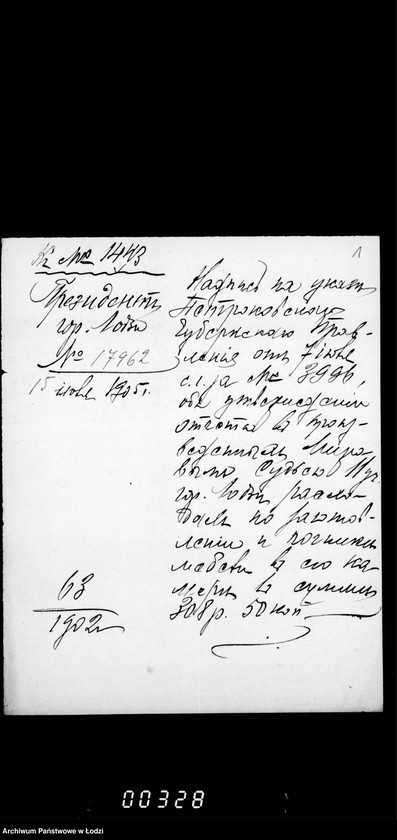 Къ № 1443
1
Президентъ
гор. Лодзи
№ 17962
15 июля 1905 г.
Надпись на указѣ
Петроковскаго
Губернскаго Прав-
ленія отъ 7 июля
с.г. за № 3996,
объ утвержденіи
отчета въ произ-
веденныхъ Миро
вымъ Судьею IV уч.
гор. Лодзи расхо-
дахъ по загото-
вленію и починкѣ
мебели въ его ка-
мерѣ въ суммѣ
308 р. 50 коп.
63
1902
00328
Archiwum Państwowe w Łodzi